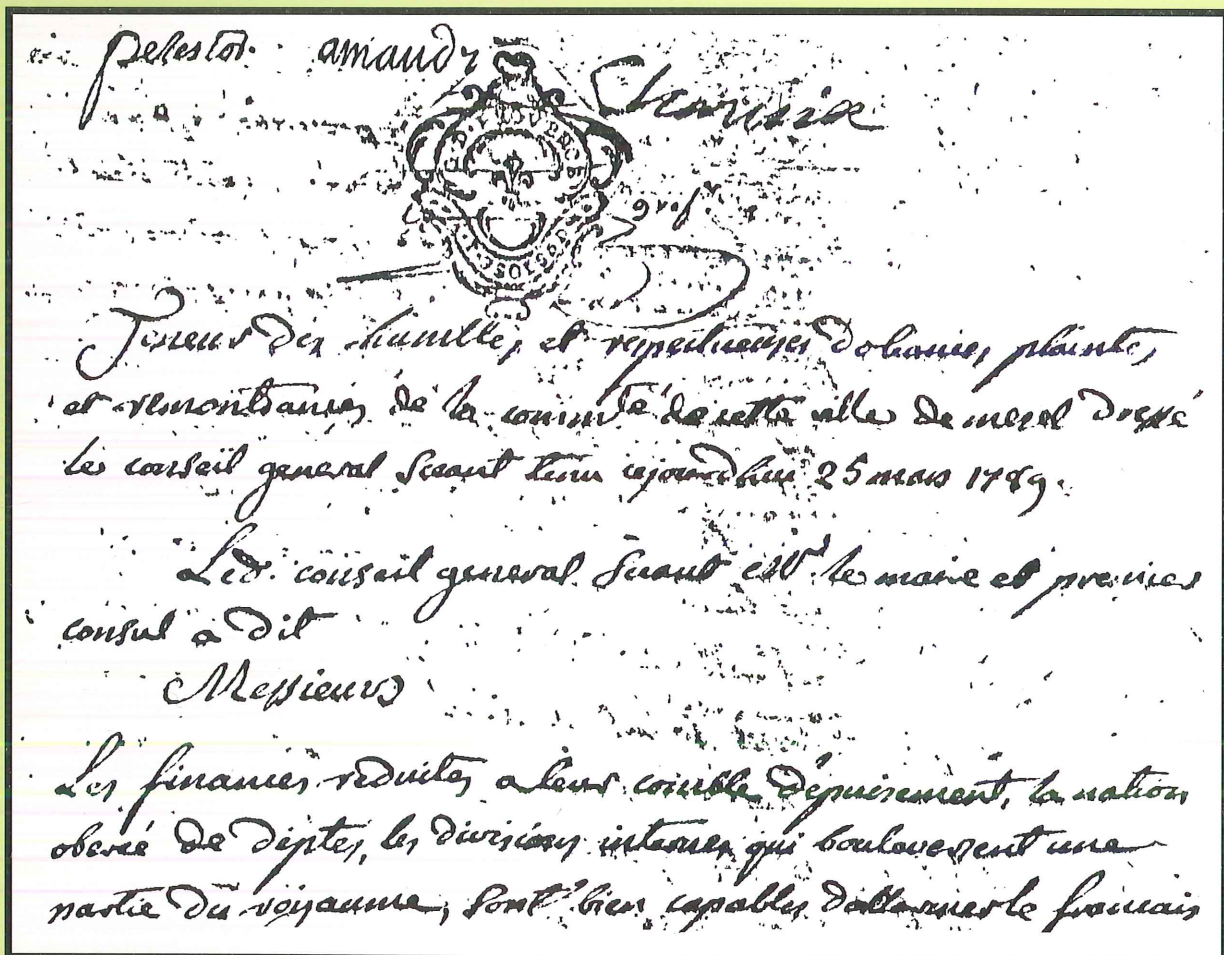 pelestor amaudz
gref
Teneur des humbles et respectueuses doleances, plaintes,
et remontrances de la commté de cette ville de mezel dressé
les conseil general seant tenu cejourdhui 25 mars 1789.
Led. conseil general seant Mr le maire et premier
consul a dit
Messieurs
Les finances reduites a leur comble d'epuisement, la nation
oberée de deptes, les divisions internes qui boulversent une
partie du royaume, sont bien capables dallarmer le francais